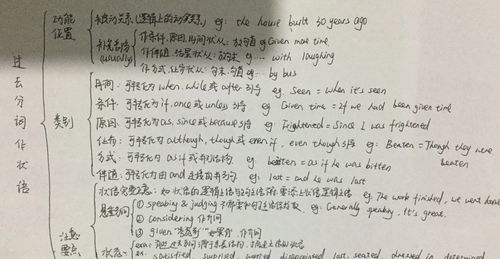 过去分词作状语
功能位置
被动关系(逻辑上的动宾关系) eg: the house built 30 years ago
作条件,原因,时间状从: 放句首 eg Given more time
(usually)
作伴随,结果状从: 放句末 eg ... with laughing
作方式,让步状从: 句末,句首 eg ... by bus
类别
时间: 可转化为 when, while 或 after 引导 eg. Seen = when it's seen
条件: 可转化为 if, once 或 unless 引导 eg Given time = If we had been given time
原因: 可转化为 as, since 或 because 引导 eg Frightened = Since I was frightened
让步: 可转化为 although, though 或 even if, even though 引导 eg: Beaten = Though they were beaten
方式: 可转化为 as if 或并列结构 eg beaten = as if he was bitten
伴随: 可转化为由 and 连接的并列句 eg. last = and he was last
注意要点
状语完整主语: 如状语的逻辑主语与句主语 eg. The work finished, we went home
① speaking & judging eg: Generally speaking, it's great.
② considering 作介词
③ given 作介词
状态
eg. satisfied, surprised, wanted, disappointed, lost, seated, dressed in, determined